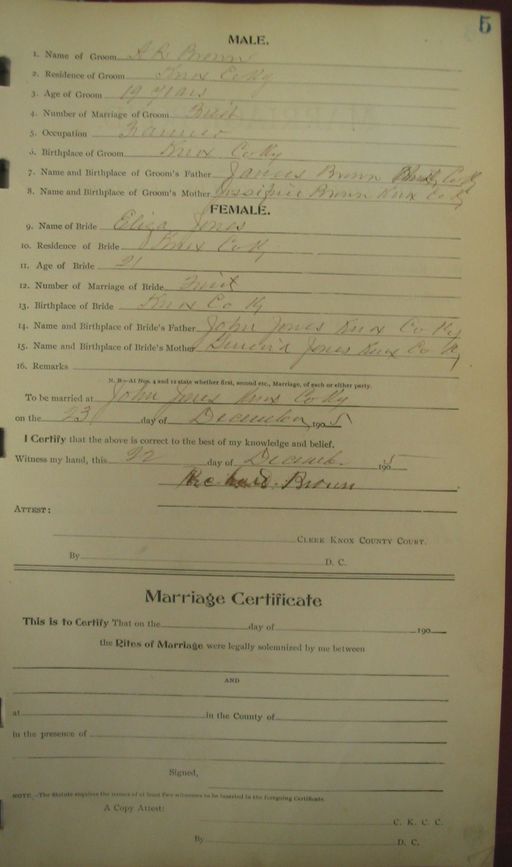 5
MALE.
1. Name of Groom A R Brown
2. Residence of Groom Knox Co Ky
3. Age of Groom 19 years
4. Number of Marriage of Groom First
5. Occupation Farmer
6. Birthplace of Groom Knox Co Ky
7. Name and Birthplace of Groom's Father James Brown Co Ky
8. Name and Birthplace of Groom's Mother Brown Knox Co Ky
FEMALE.
9. Name of Bride Eliza Jones
10. Residence of Bride Knox Co Ky
11. Age of Bride 21
12. Number of Marriage of Bride First
13. Birthplace of Bride Knox Co Ky
14. Name and Birthplace of Bride's Father John Jones Knox Co Ky
15. Name and Birthplace of Bride's Mother Jones Knox Co Ky
16. Remarks
N. B.—At Nos. 4 and 12 state whether first, second etc., Marriage, of each or either party.
To be married at John Jones Knox Co Ky
on the 23 day of December, 1905
I Certify that the above is correct to the best of my knowledge and belief.
Witness my hand, this 22 day of Decemb. 1905
Richard Brown
ATTEST:
CLERK KNOX COUNTY COURT.
By D. C.
Marriage Certificate
This is to Certify That on the day of 190
the Rites of Marriage were legally solemnized by me between
AND
at in the County of
in the presence of
Signed,
NOTE.—The Statute requires the names of at least two witnesses to be inserted in the foregoing Certificate.
A Copy Attest:
C. K. C. C.
By D. C.